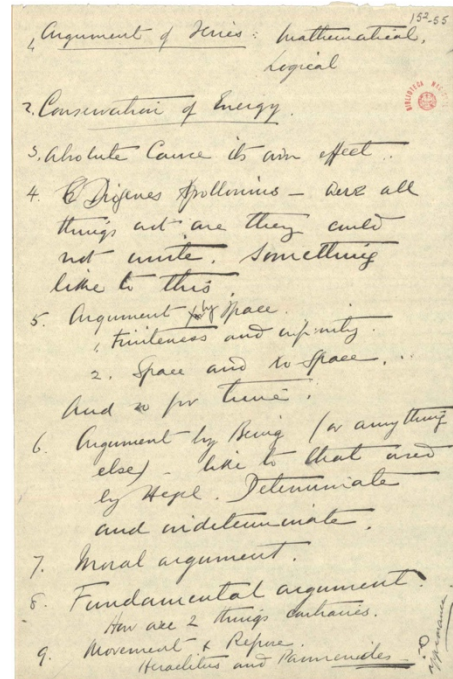 152-55
1, Argument of Series: Mathematical,
Logical
2. Conservation of Energy.
3. Absolute Cause its own effect.
4. Diogenes Apollonius — were all
things not are they could
not unite. Something
like to this.
5. Argument by Space.
1, Finiteness and infinity.
2. Space and no Space...
And so for time.
6. Argument by Being (or anything
else) – like to that used
by Hegel. Determinate
and indeterminate.
7. Moral argument.
8. Fundamental argument.
How are 2 things contraries.
9. Movement & Repose.
Heraclitus and Parmenides.
appearance